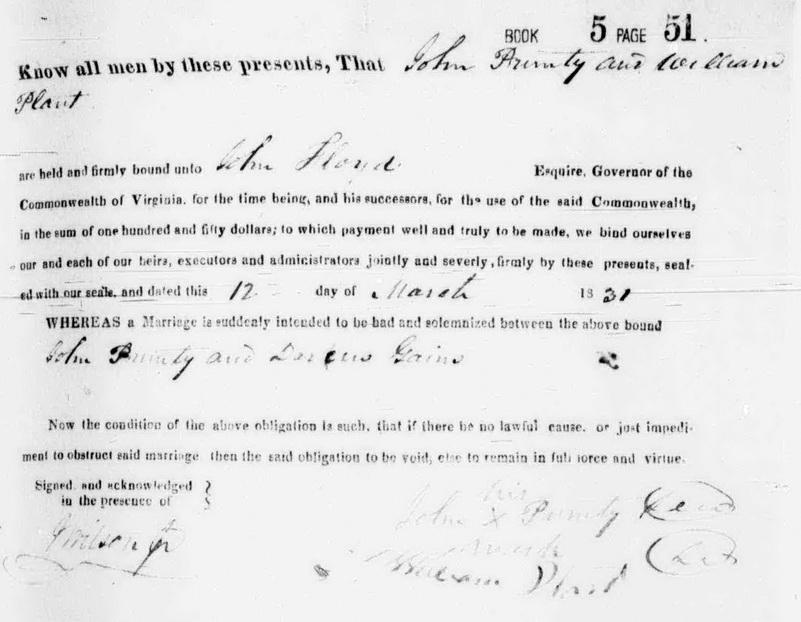 BOOK 5 PAGE 51.
Know all men by these presents, That John Prunty and William
Plant
are held and firmly bound unto John Floyd Esquire, Governor of the
Commonwealth of Virginia, for the time being, and his successors, for the use of the said Commonwealth,
in the sum of one hundred and fifty dollars; to which payment well and truly to be made, we bind ourselves
our and each of our heirs, executors and administrators jointly and severly, firmly by these presents, seal-
ed with our seals, and dated this 12 day of March 1831
WHEREAS a Marriage is suddenly intended to be had and solemnized between the above bound
John Prunty and Dorcus Gains
Now the condition of the above obligation is such, that if there be no lawful cause, or just impedi-
ment to obstruct said marriage then the said obligation to be void, else to remain in full force and virtue.
Signed and acknowledged
in the presence of
his
John X Prunty
mark
Wilson
William Plant